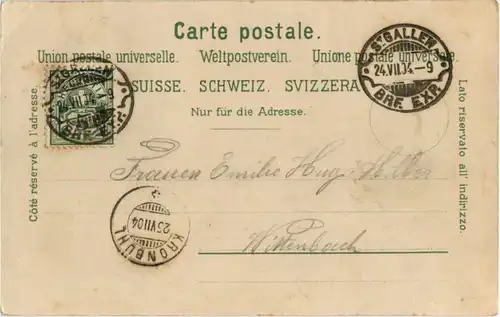 Carte postale.
Union postale universelle. Weltpostverein. Unione postale universale.
SUISSE. SCHWEIZ. SVIZZERA.
Nur für die Adresse.
Côté réservé à l'adresse.
Lato riservato all' indirizzo.
ST GALLEN
24.VII.04.-9
BRF. EXP.
ST GALLEN
24.VII.04.-9
BRF. EXP.
Frauen Emilie Hug
Wittenbach
25 VII 04
KRONBÜHL